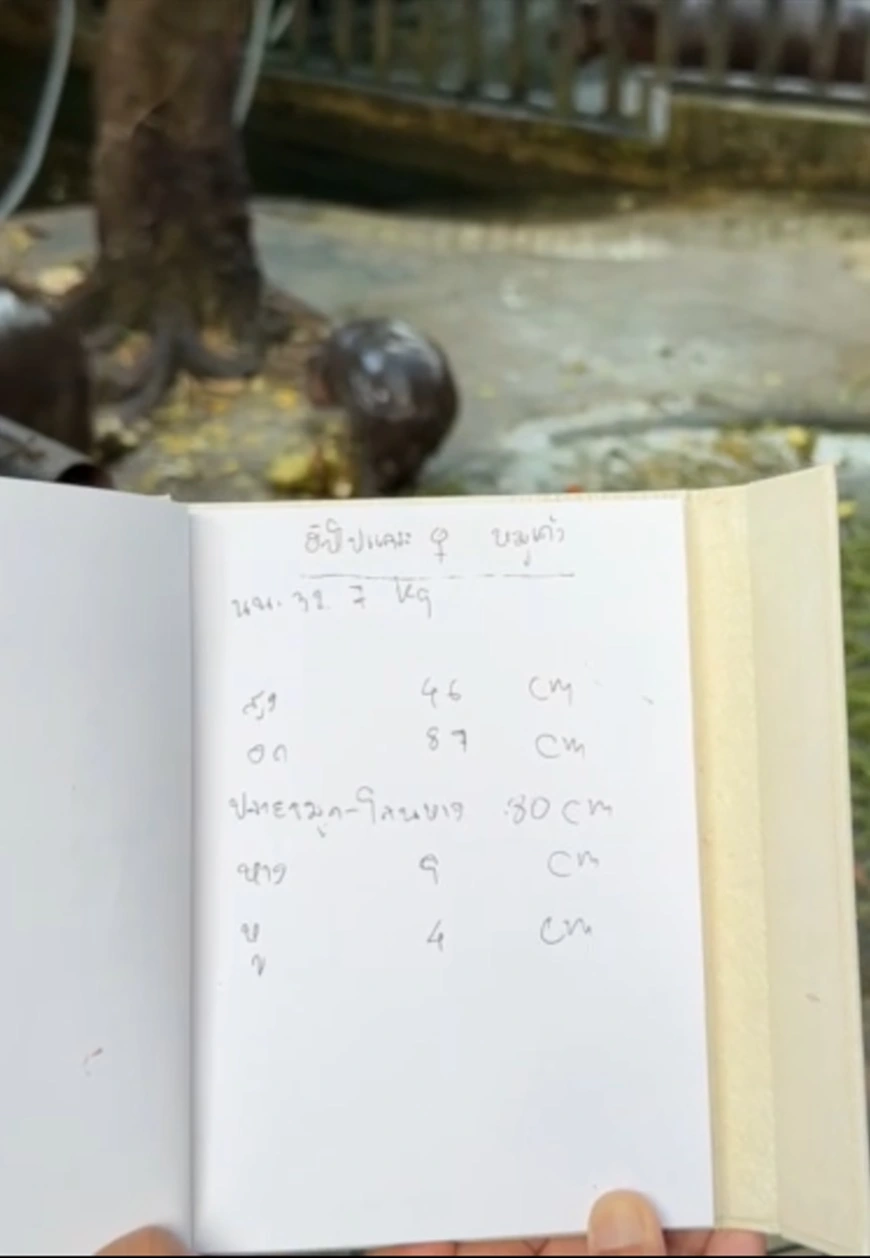 ฮิปโปแคระ ♀ หมูเด้ง
นน. 32.7 Kg
สูง 46 cm
อก 87 cm
ปลายจมูก-โคนหาง 80 cm
หาง 9 cm
หู 4 cm